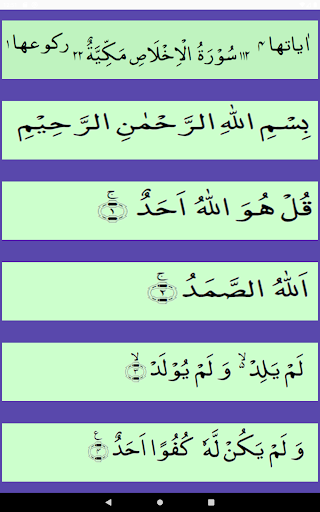 اٰیاتها ۴ ۱۱۲ سُوْرَۃُ الْاِخْلَاصِ مَکِّیَّۃٌ ۲۲ رکوعها ۱
بِسْمِ اللّٰهِ الرَّحْمٰنِ الرَّحِیْمِ
قُلْ هُوَ اللّٰهُ اَحَدٌ ۚ‏﴿۱﴾
اَللّٰهُ الصَّمَدُ ۚ‏﴿۲﴾
لَمْ یَلِدْ ۙ وَ لَمْ یُوْلَدْ ۙ‏﴿۳﴾
وَ لَمْ یَکُنْ لَّهٗ کُفُوًا اَحَدٌ ﴿۴﴾